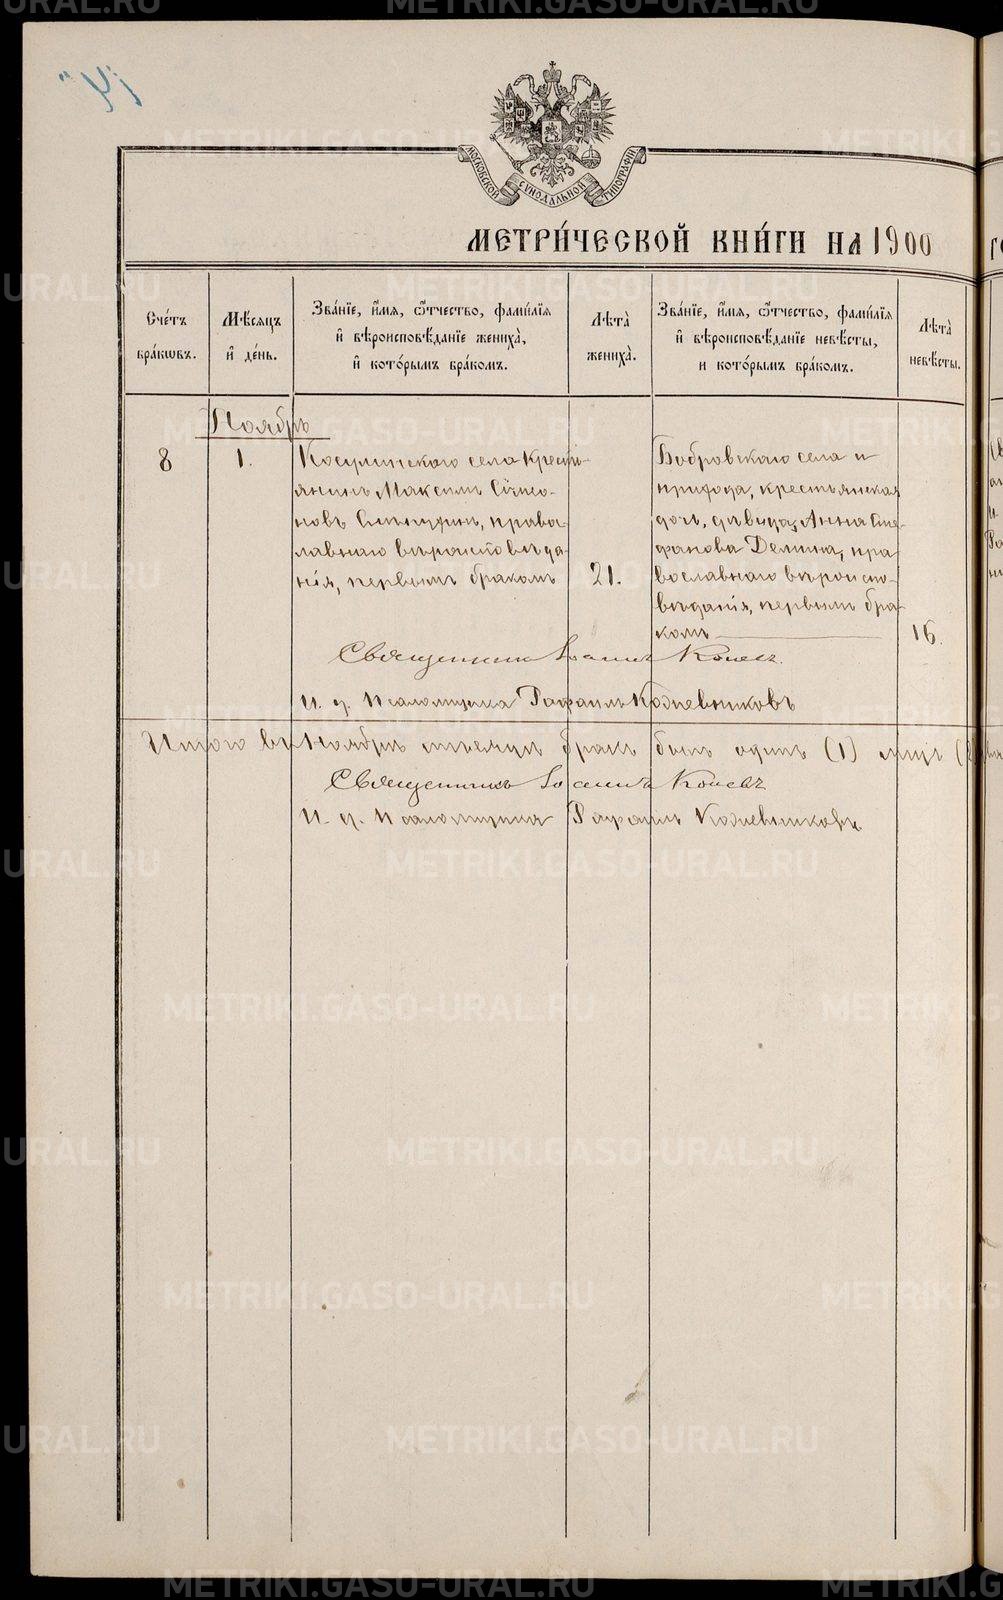 МОСКОВСКОЙ СѴНОДАЛЬНОЙ ТИПОГРАФІИ
МЕТРИ́ЧЕСКОЙ КНИ́ГИ НА 1900
Сче́тъ бра́кѡвъ.
Мѣсяцъ и҆ де́нь.
Зва́нїе, и҆́мѧ, ѻ҆́тчество, фами́лїѧ и҆ вѣроисповѣ́данїе жениха̀, и҆ кото́рымъ бра́комъ.
Лѣта̀ жениха̀.
Зва́нїе, и҆́мѧ, ѻ҆́тчество, фами́лїѧ и҆ вѣроисповѣ́данїе невѣ́сты, и кото́рымъ бра́комъ.
Лѣта̀ невѣ́сты.
Ноябрь
8
1.
Косулинскаго села крестъ-
янинъ Максимъ Симео-
новъ правос-
лавнаго вѣроисповѣда-
нія, первымъ бракомъ
21.
Бобровскаго села и
прихода, крестьянская
дочь, дѣвица, Анна Сте-
фанова Демина, пра-
вославнаго вѣроиспо-
вѣданія, первымъ бра-
комъ
16.
Священникъ Іоаннъ
И. д. Псаломщика Рафаилъ Кожевниковъ
Итого въ Ноябрѣ мѣсяцѣ бракъ былъ одинъ (1) лицъ (2)
Священникъ Іоаннъ
И. д. Псаломщика Рафаилъ Кожевниковъ
METRIKI.GASO-URAL.RU